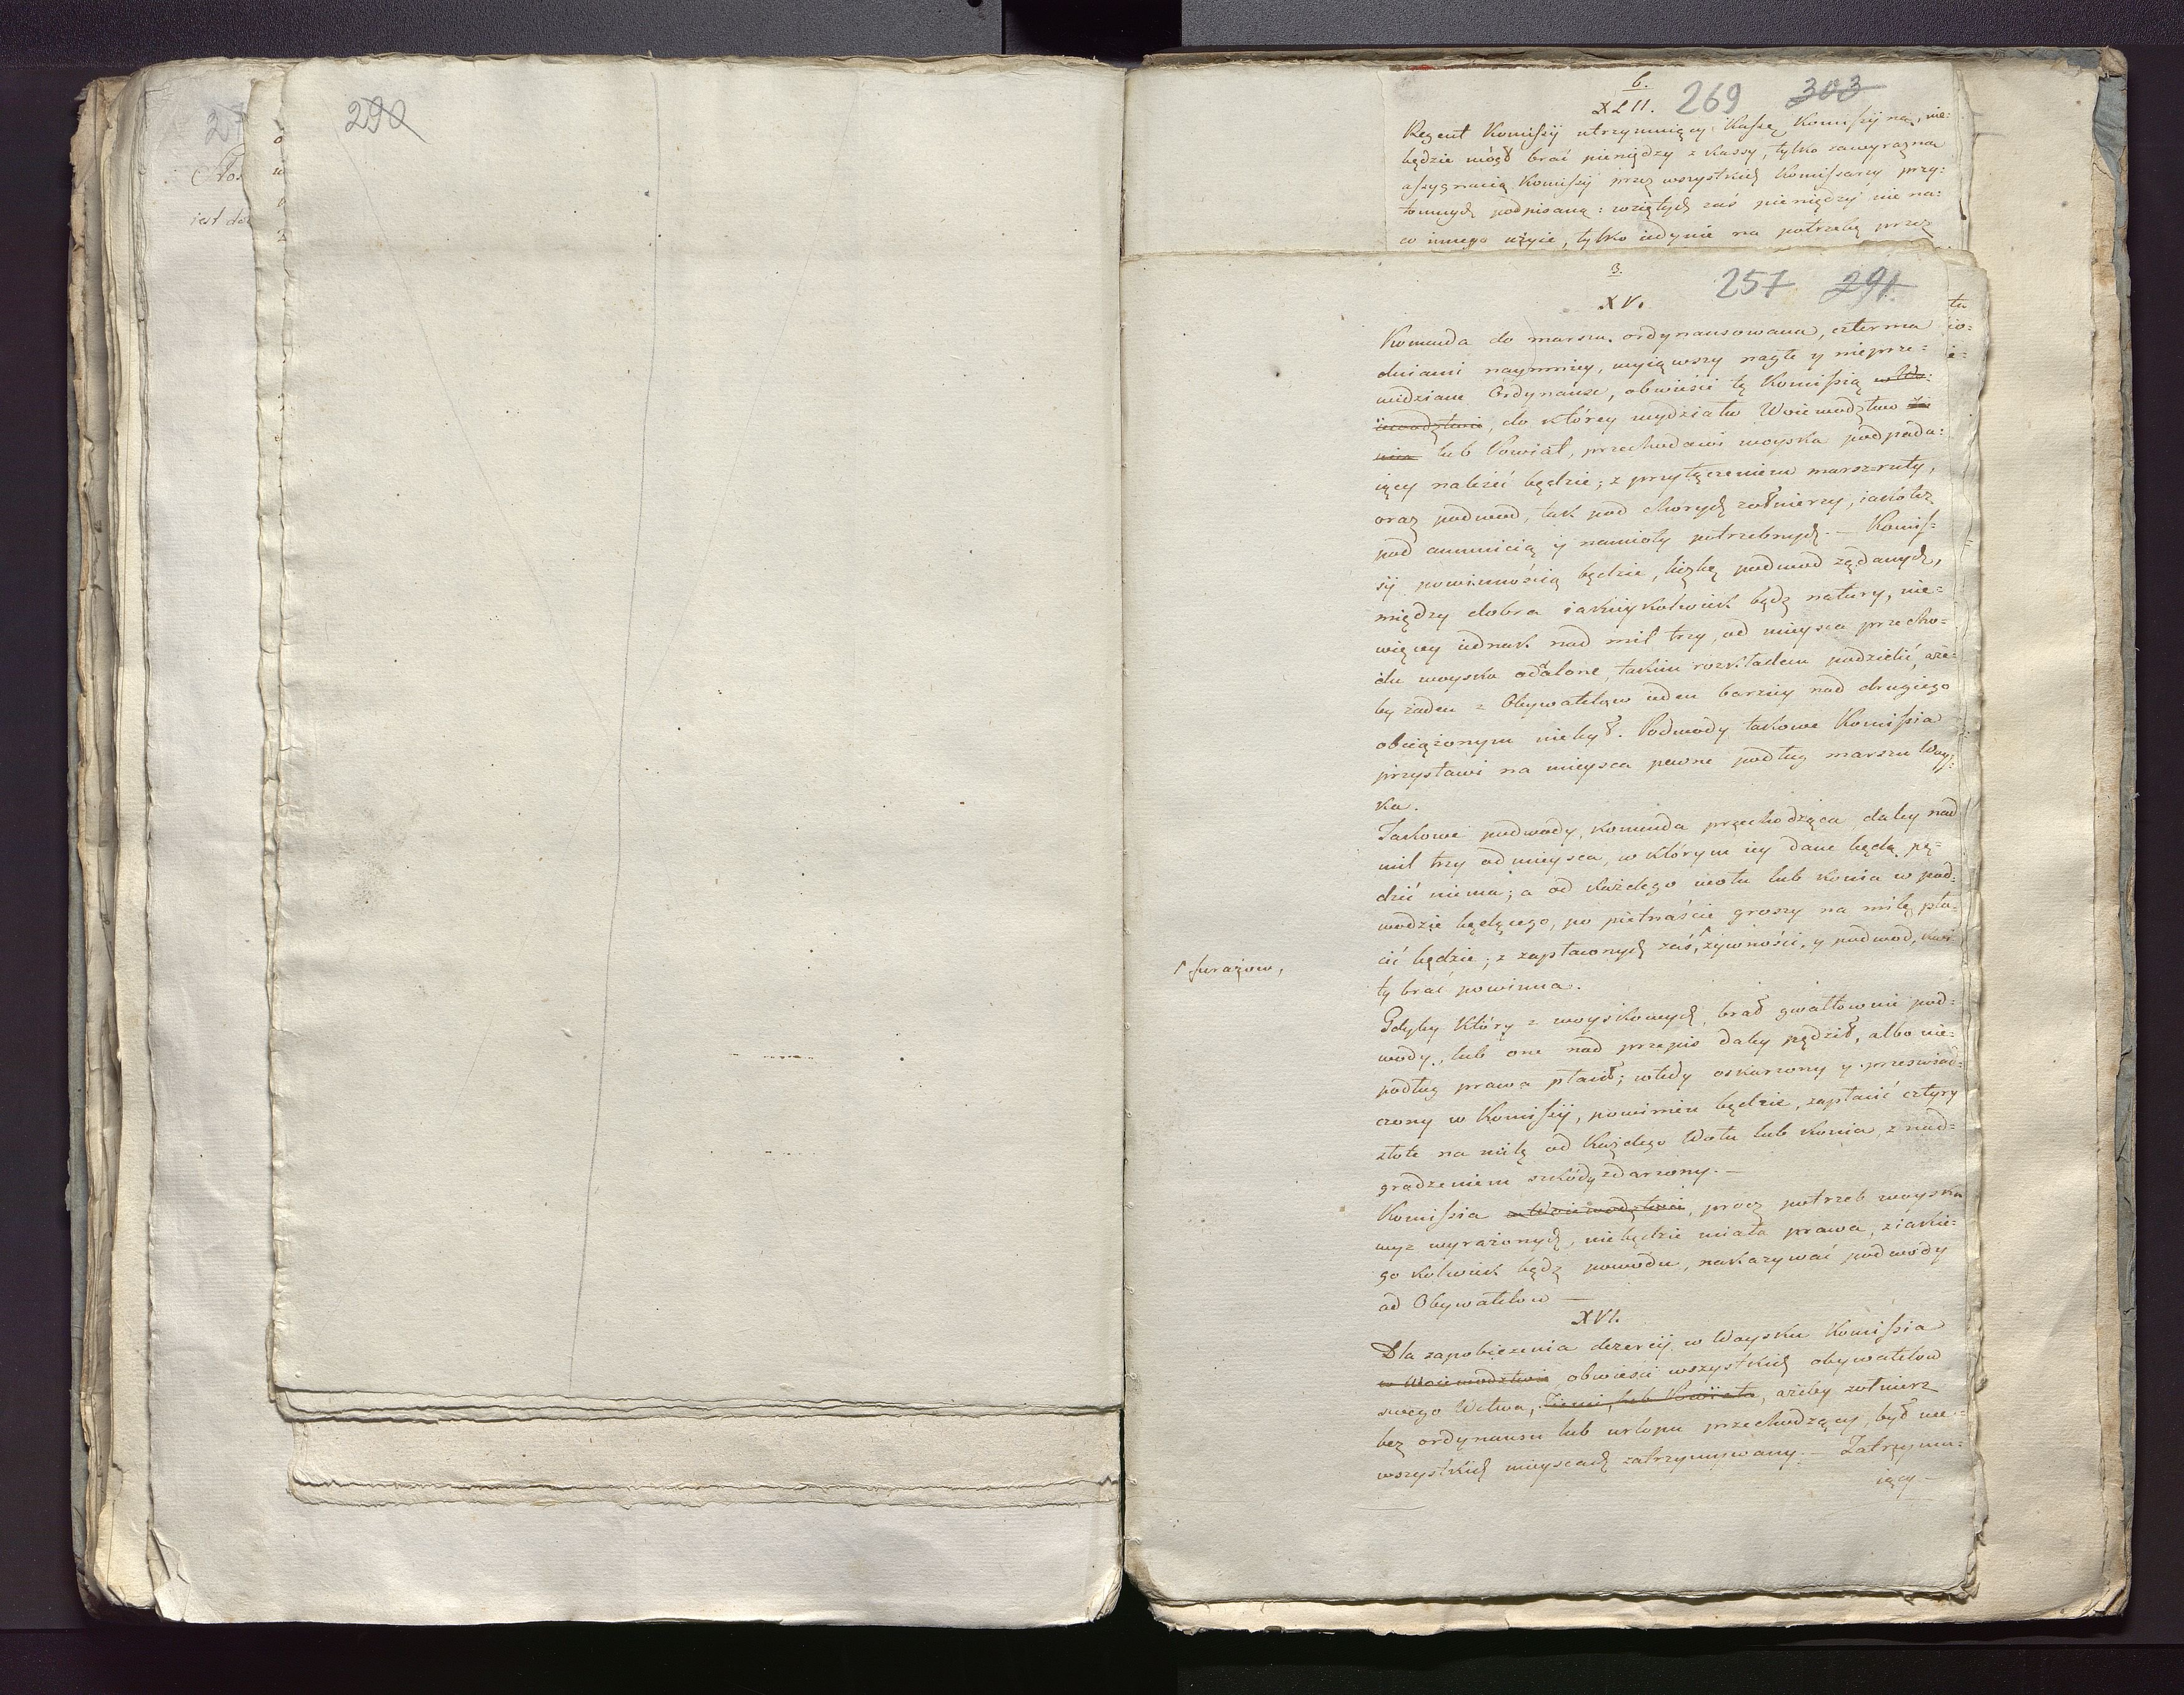 290
6.
XLII. 269 303
Regent Komissyi utrzymuiący Kassę Komissyiną, nie:
będzie mógł brać pieniędzy z Kassy, tylko za wyrazną
assygnacią Komissyi przez wszystkich Komissarzy przy:
tomnych podpisaną: wziętych zaś pieniędzy nie na:
co innego użyie, tylko iedynie na potrzeby przez
3. 257 291
XV.
Komenda do marszu ordynansowana, czterma
dniami naymniey, wyiąwszy nagłe y nieprze:
widziane Ordynanse, obwieści tę Komissią w Wo:
iewodztwie, do którey wydziału Woiewodztwo Zie
mia lub Powiat, przechodowi woyska podpada:
iący należeć będzie; z przyłączeniem marsz-ruty,
oraz podwod, tak pod chorych żołnierzy, iako też
pod amunicią y namioty potrzebnych. — Komis:
syi powinnością będzie, liczbę podwod żądanych,
między dobra iakieykolwiek bądz natury, nie:
więcey iednak nad mil trzy, od mieysca przecho:
du woyska oddalone, takim rozkładem podzielić, aże:
by żaden z Obywatelow ieden barziey nad drugiego
obciążonym niebył. Podwody takowe Komissia
przystawi na mieysca pewne podług marszu Woy:
ska.
Takowe podwody, komenda przechodząca daley nad
mil trzy od mieysca, w którym iey dane będą pę:
dzić niema; a od każdego wołu lub konia w pod:
wodzie będącego, po pietnaście groszy na milę pła:
cić będzie; z zapłaconych zaś, żywności, y podwod, kwi
ty brać powinna.
furażow,
Gdyby który z woyskowych, brał gwałtownie pod:
wody, lub one nad przepis daley pędził, albo nie:
podług prawa płacił; wtedy oskarzony y przeswiad:
czony w Komissyi, powinien będzie, zapłacić cztyry
złote na milę od każdego Wołu lub konia, z nad:
gradzeniem szkody zdarzoney. —
Komissia w Woiewodztwie, procz potrzeb woyska
wyż wyrażonych, niebędzie miała prawa, z iakie:
go kolwiek bądz powodu, nakazywać podwody
od Obywatelow —
XVI.
Dla zapobieżenia dezercyi w Woysku Komissia
w Woiewodztwie obwieści wszystkich obywatelow
swego Wdtwa, Ziemi, lub Powiatu, ażeby żołnierz
bez ordynansu lub urlopu przechodzący, był we:
wszystkich mieyscach zatrzymywany. — Zatrzymu:
iący —